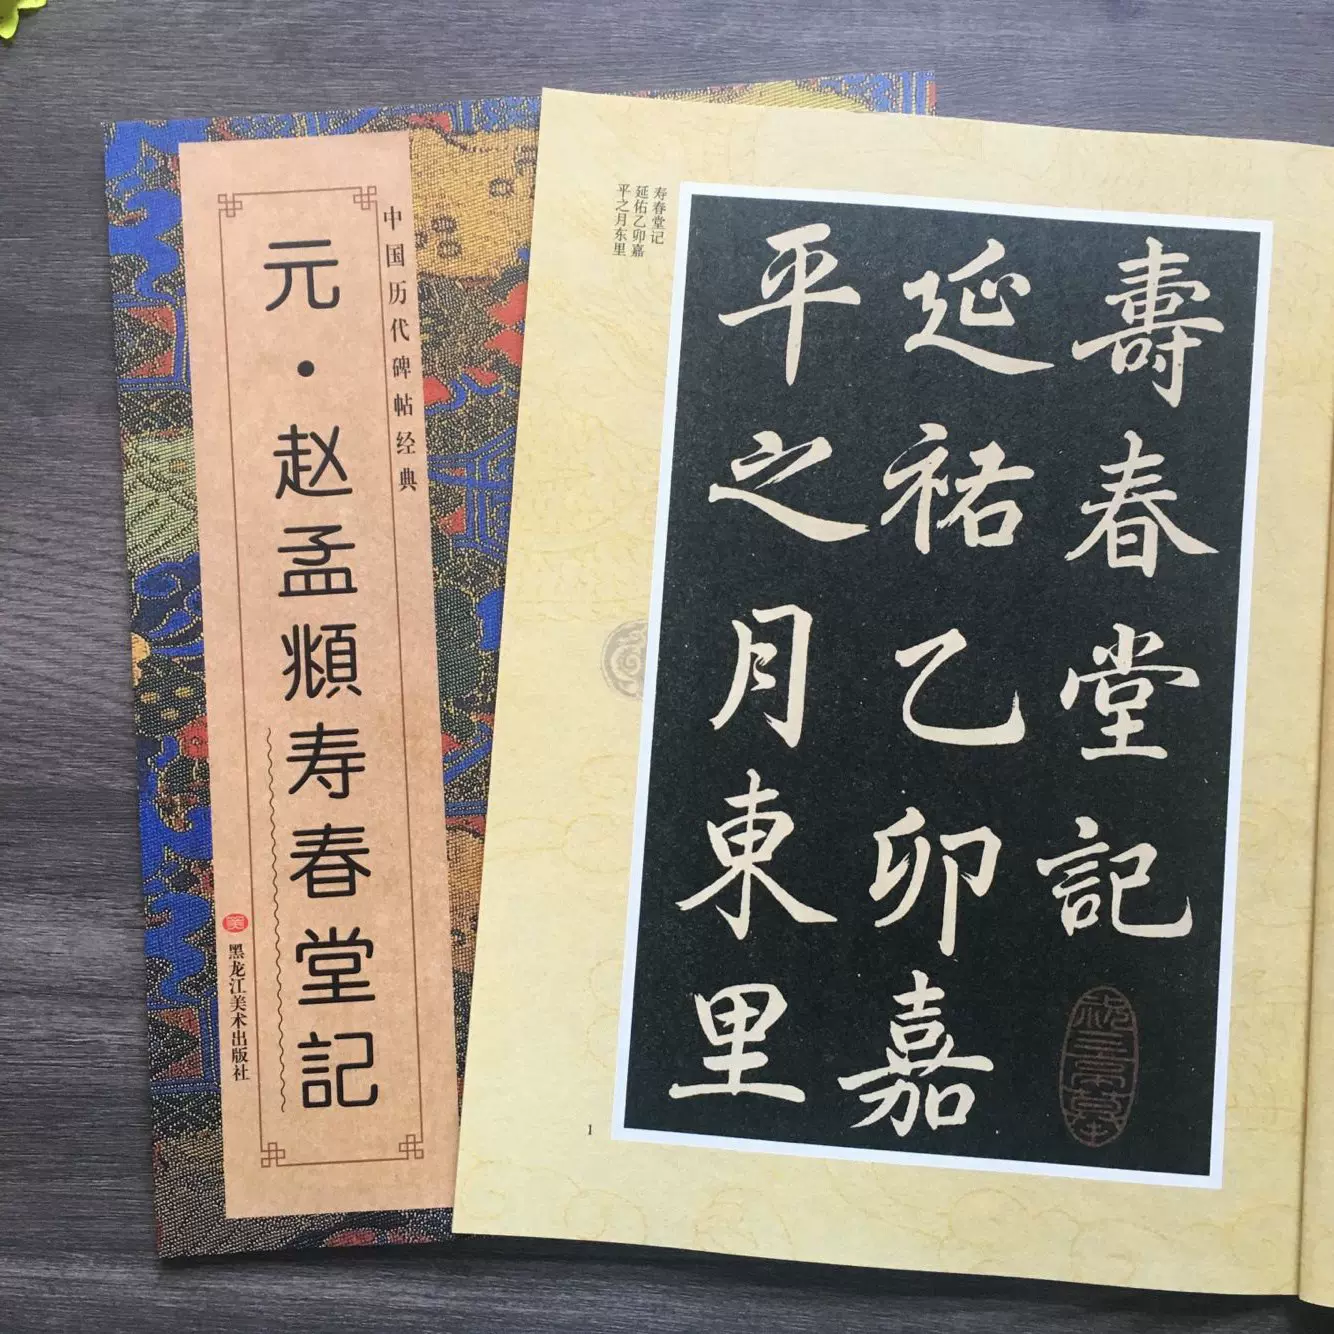 中国历代碑帖经典
元·赵孟頫寿春堂記
黑龙江美术出版社
寿春堂记
延佑乙卯嘉
平之月东里
壽春堂記
延祐乙卯嘉
平之月東里
1